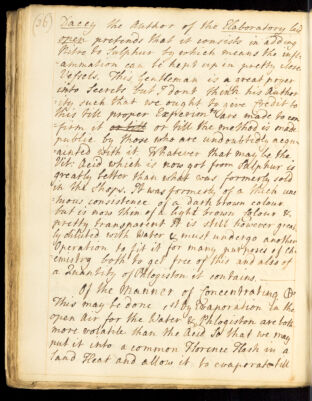 (36) Dacey the Author of the Elaboratory laid
open pretends that it consists in adding
Nitre to Sulphur by which means the infl-
ammation can be kept up in pretty close
Vessels. This Gentleman is a great pryer
into Secrets but I dont think his Author
ity such that we ought to give credit to
this till proper Experimts are made to con
firm it or till the method is made
public by those who are undoubtedly acqu-
ainted with it Whatever that may be the
Vit: Acid which is now got from Sulphur is
greatly better than what was formerly sold
in the Shops. It was formerly of a thick unc
tuous consistence of a dark brown colour
but is now then of a light brown Colour &
pretty transparent It is still however great
ly diluted with Water & must undergo another
Operation to fit it for many purposes of Ch
emistry both to get free of this and also of
a Quantity of Phlogiston it contains
Of the Manner of Concentrating
This may be done 1st by Evaporation in the
open Air for the Water & Phlogiston are both
more volatile than the Acid So that we may
put it into a common Florence Flask in a
Sand Heat and allow it to evaporate till